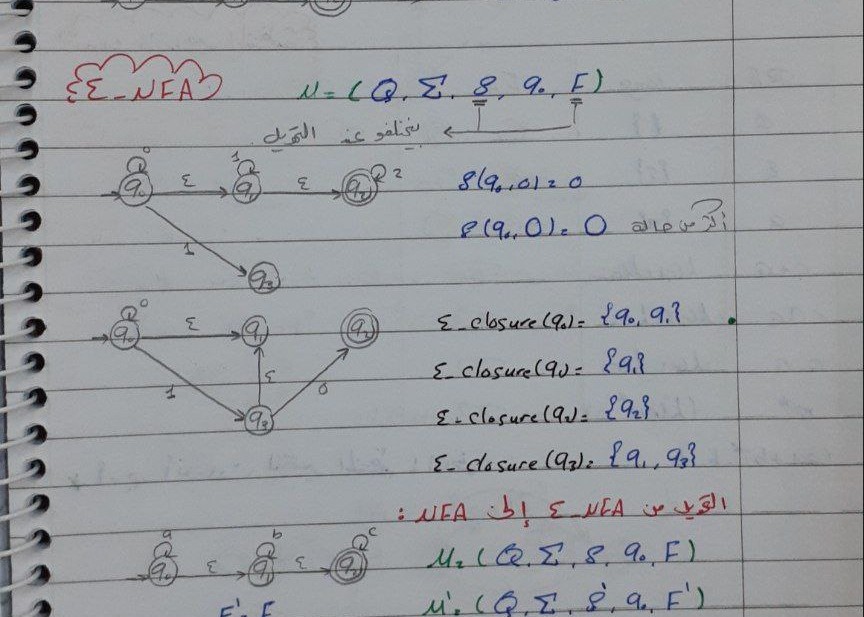 { Ɛ-NFA } M = ( Q, Σ, δ, q₀, F )
يختلفو عند التحويل
0 1 2
q₀ ε q₁ ε q₂ δ(q₀, 0) = 0
δ(q₀, 0) = 0 أكثر من حالة
1
q₃
0
q₀ ε q₁ q₂ ε-closure(q₀) = {q₀, q₁}
ε-closure(q₁) = {q₁}
1 ε 0
q₃ ε-closure(q₂) = {q₂}
ε-closure(q₃) = {q₁, q₃}
التحويل من ε-NFA إلى NFA :
a b c
q₀ ε q₁ ε q₂ M = (Q, Σ, δ, q₀, F)
F' = F M' = (Q, Σ, δ', q₀, F')